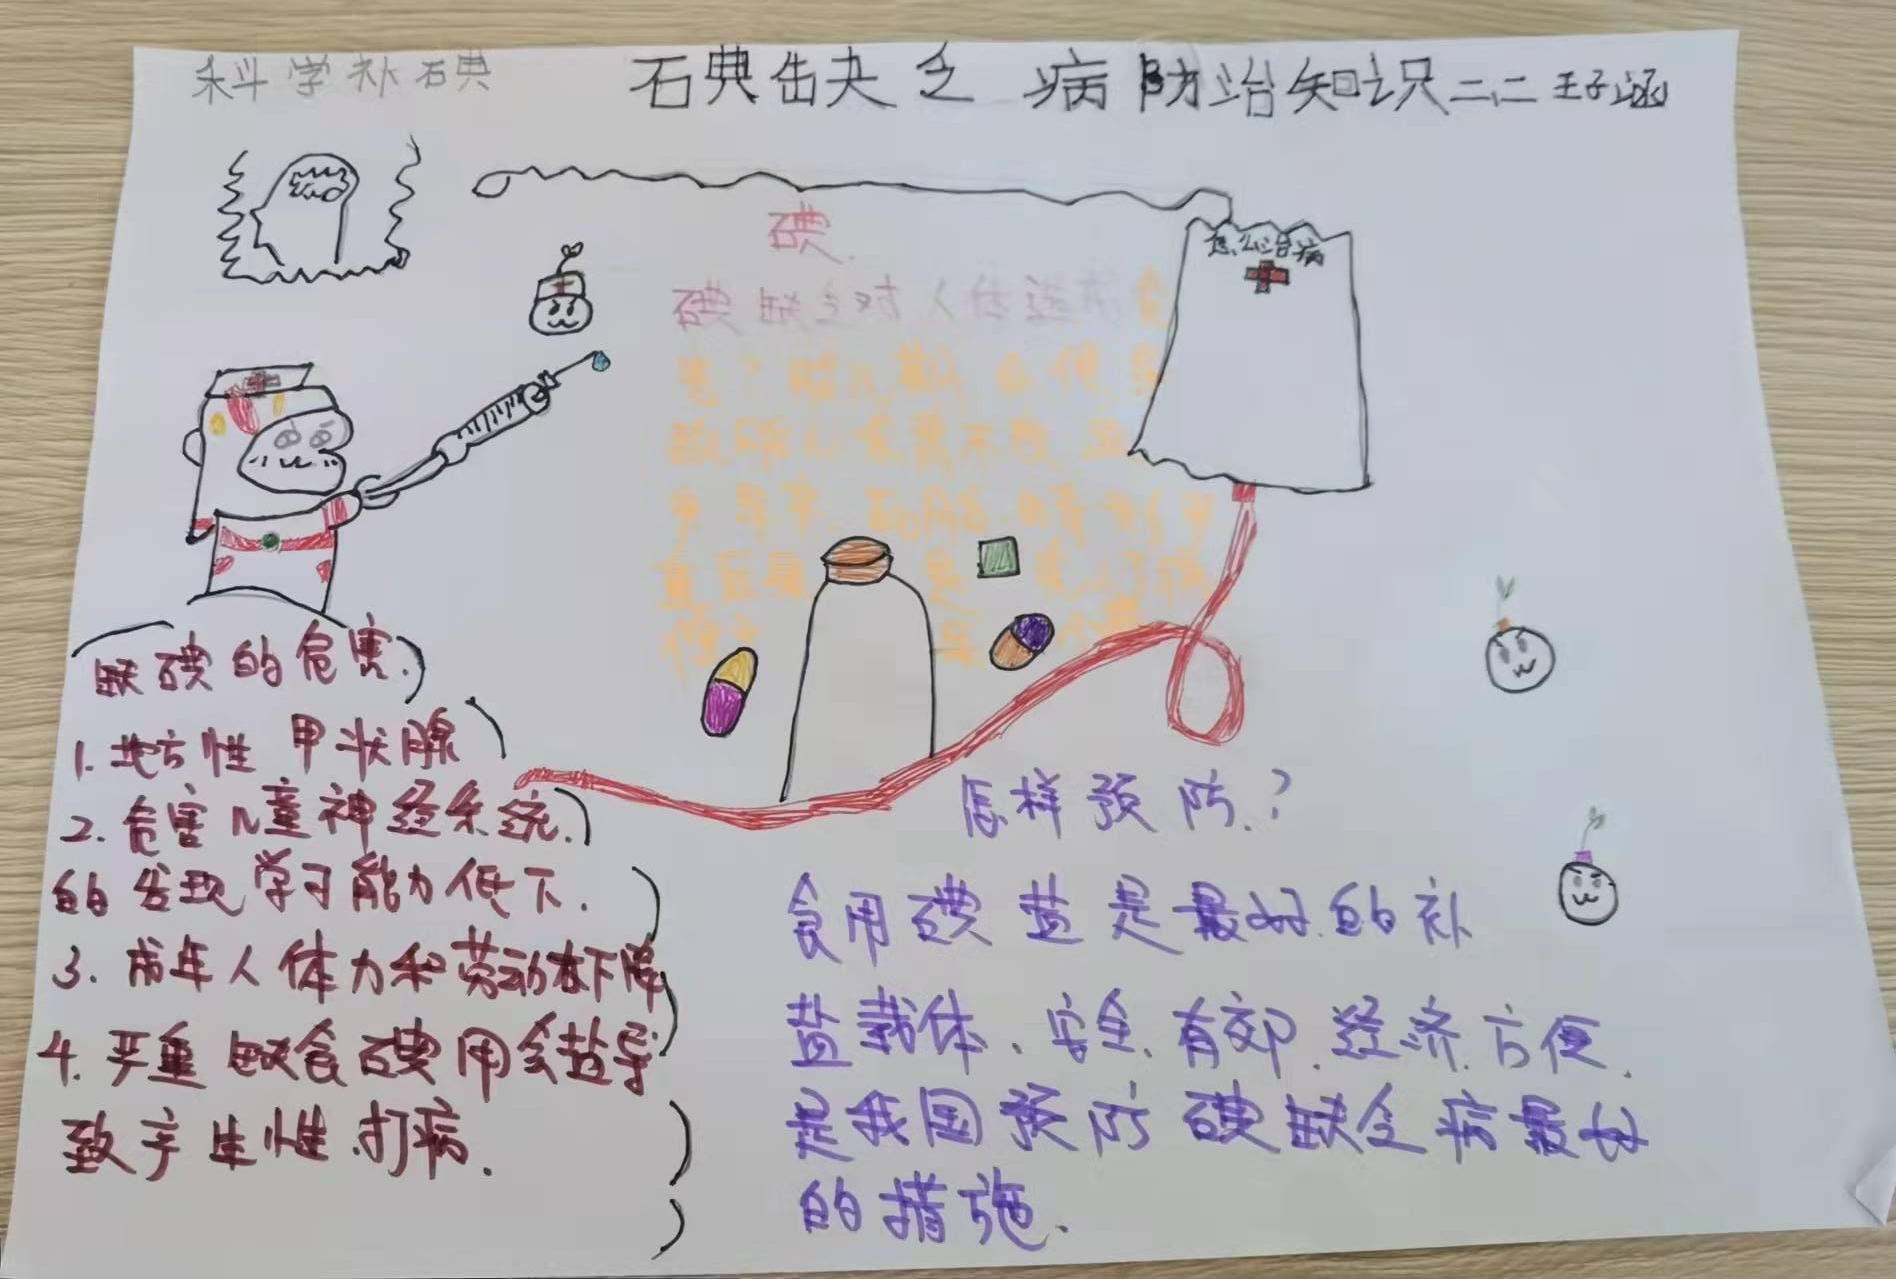 科学补碘
碘缺乏 病 防治知识 二、二 王子涵
怎么治病
碘
碘缺乏对人体造成危
害？胎儿期 会使
缺碘的危害
1. 地方性 甲状腺
2. 危害儿童神经系统
的发现学习能力低下.
3. 成年人体力和劳动力下降
4. 严重缺食碘用食盐导
致产生性 打病.
怎样预防？
食用碘盐是最好的补
盐载体、安全、有效、经济、方便.
是我国预防碘缺乏病最好
的措施.